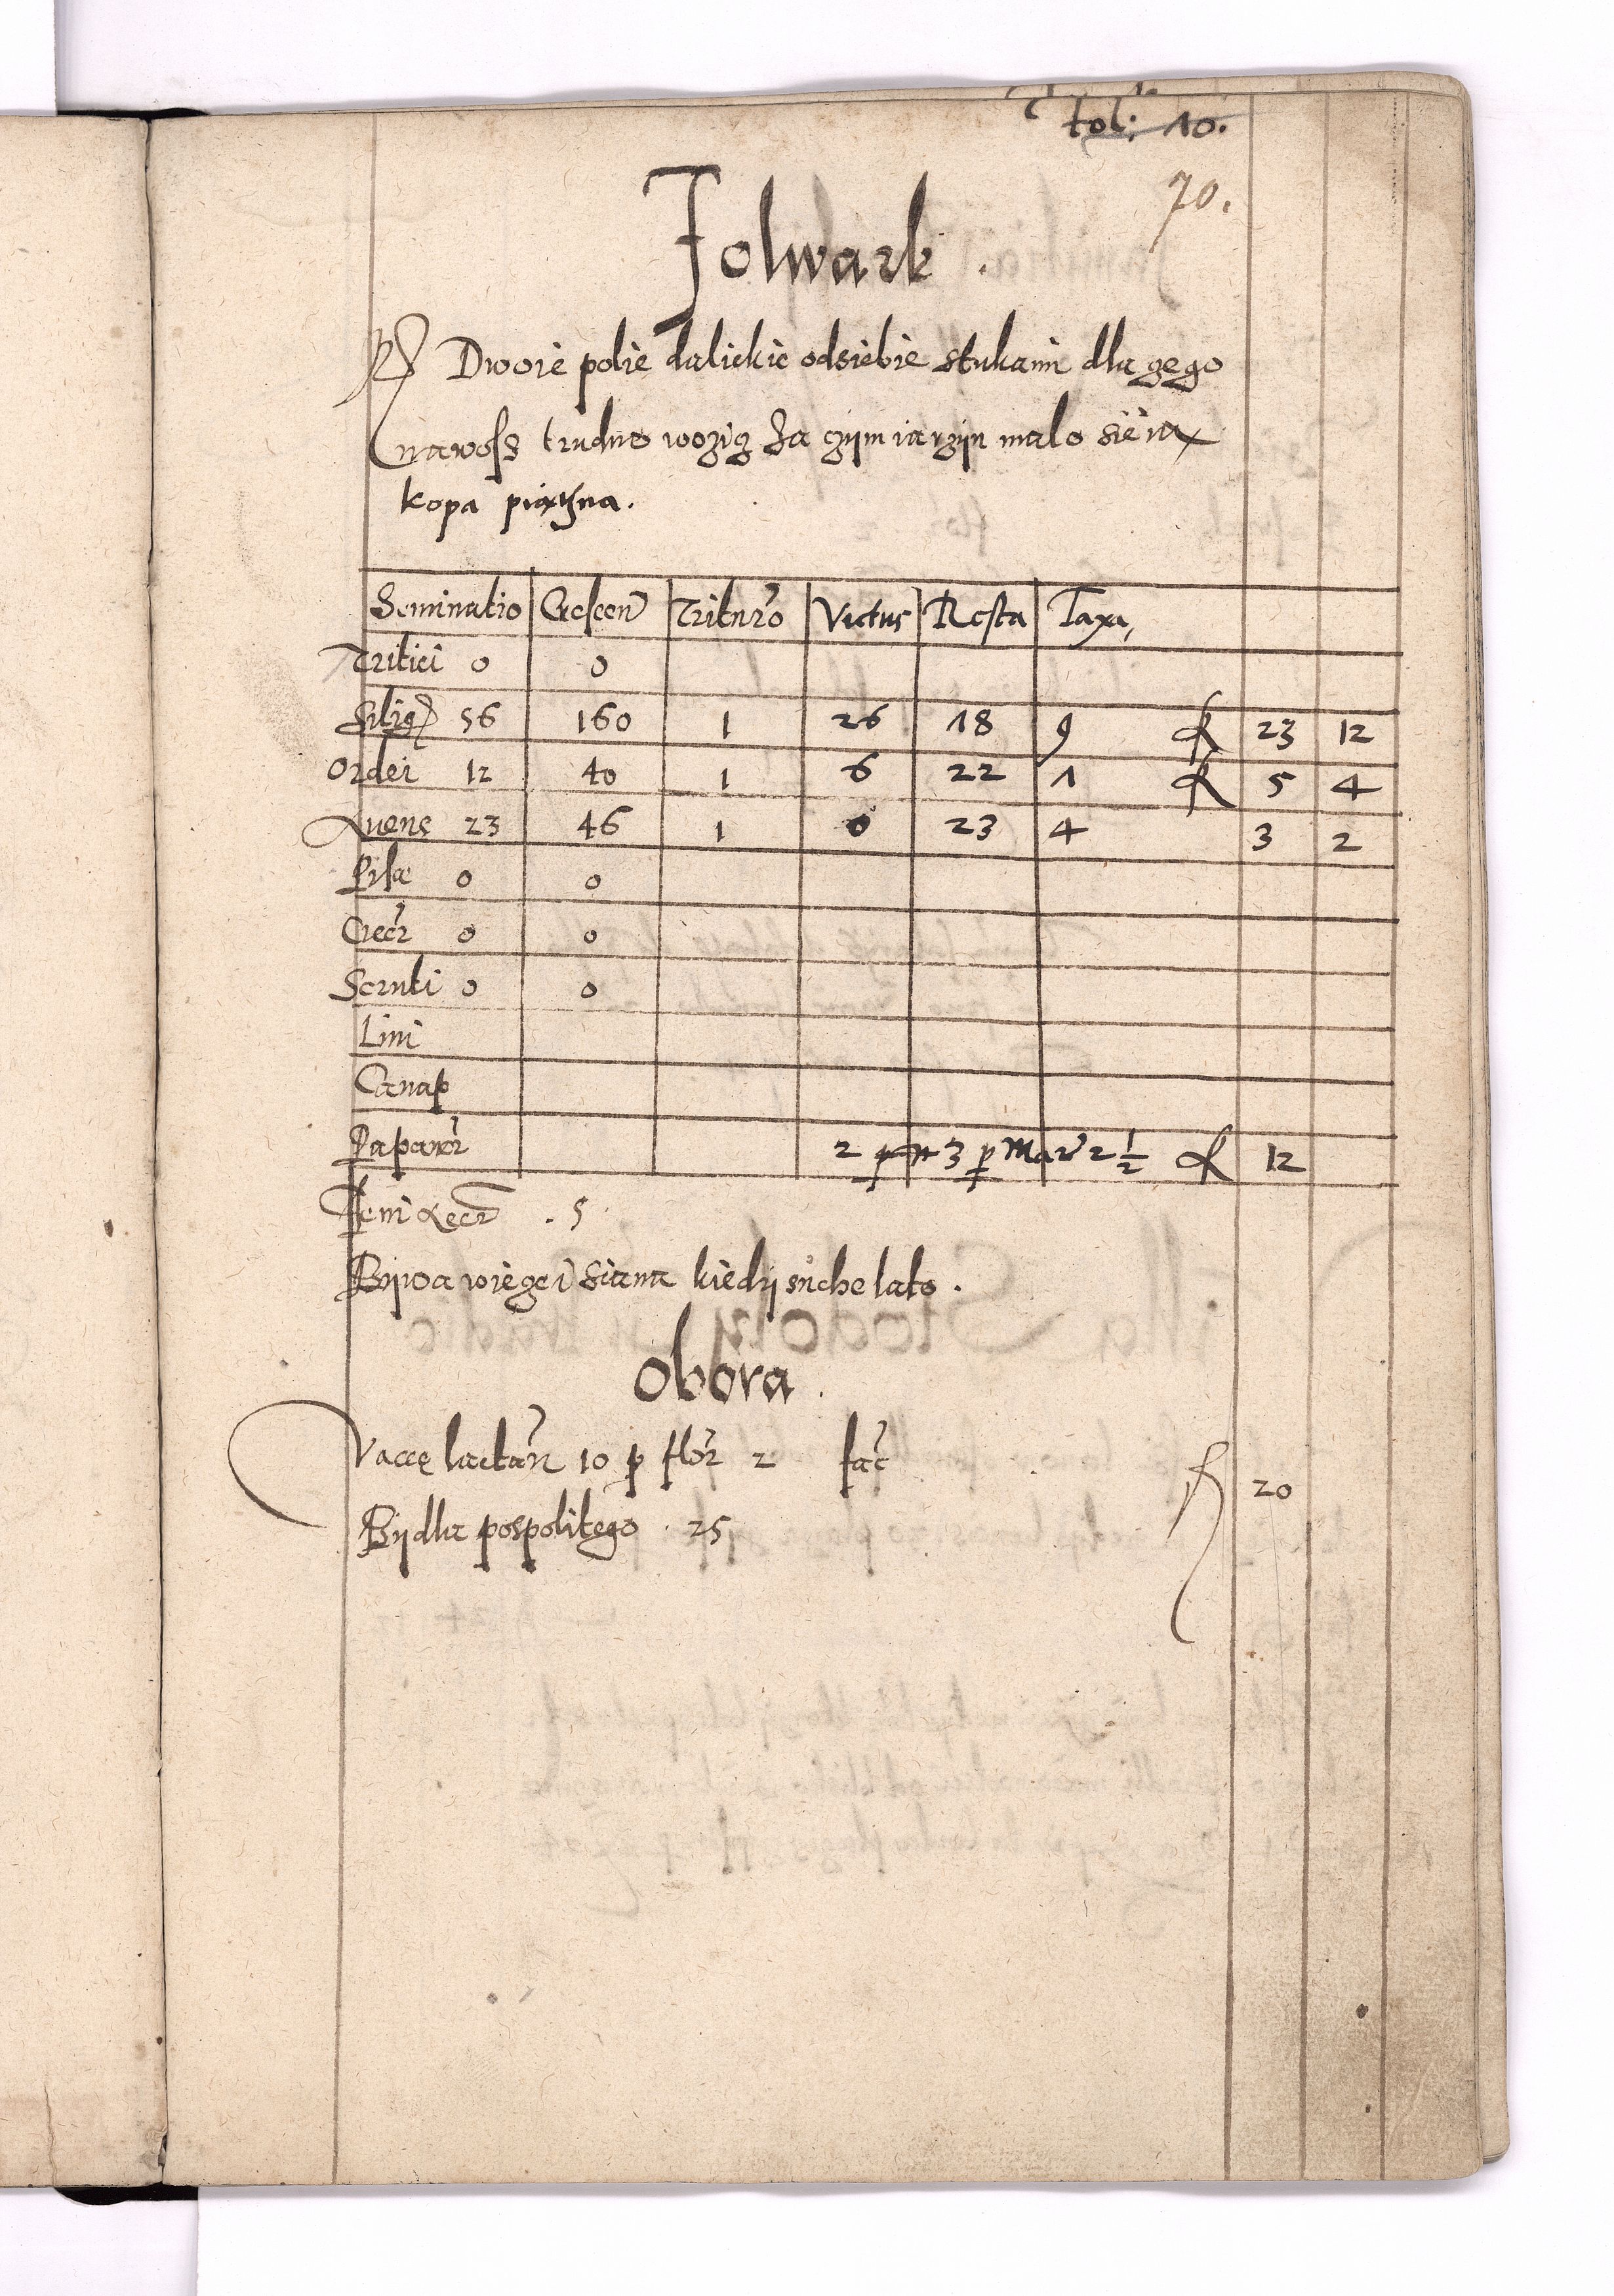 fol: 10.
70.
Folwark.
Dwoie polie daliekie odsiebie stukami dla czego
nawosz trudno wozicz Za czym iarzyn malo sie na
kopa piaczna.
Seminatio Crescen Trituro Victus Resta Taxa
Tritici 0 0
Silig 56 160 1 26 18 9 fl 23 12
Ordei 12 40 1 6 22 1 fl 5 4
Avene 23 46 1 0 23 4 3 2
Pisae 0 0
Cicer 0 0
Scruti 0 0
Lini
Canap
Papaver 2 3 p Mar 2 1/2 fl 12
Feni 5
Bywa wiecei Siana kiedy suche lato.
Obora.
Vacce lactan 10 p flor 2 fac fl 20
Bydla pospolitego 25